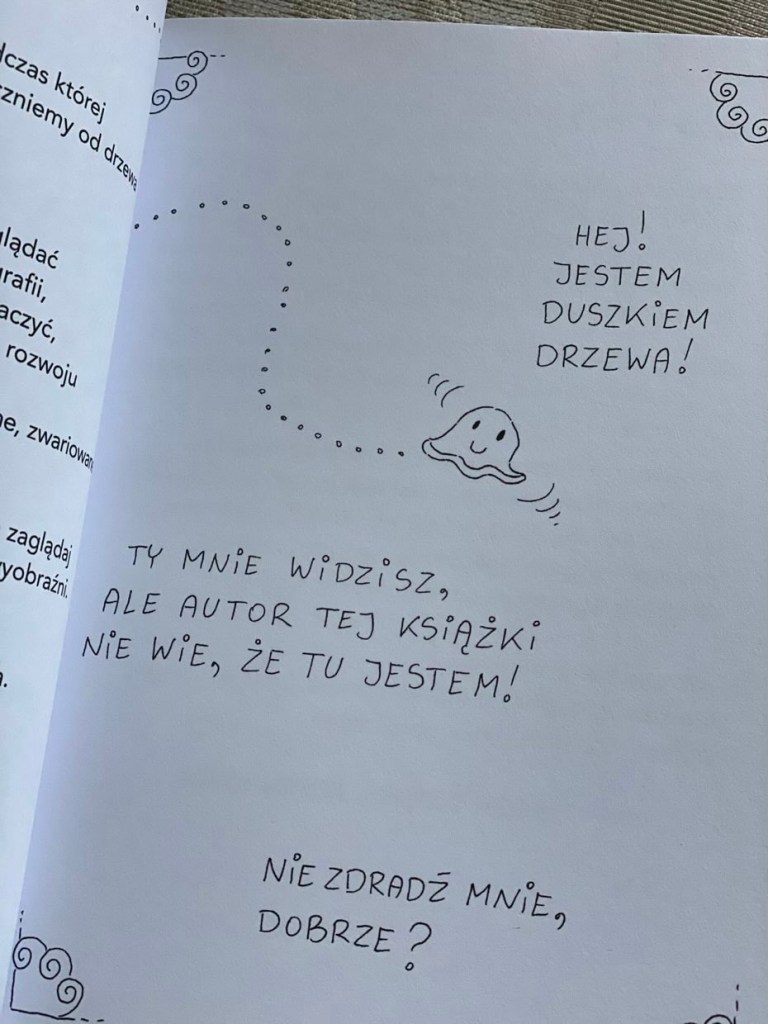 dczas której
czniemy od drzewa
glądać
grafii,
aczyć,
rozwoju
ne, zwariowan
zaglądaj
yobraźni.
HEJ!
JESTEM
DUSZKIEM
DRZEWA!
TY MNIE WIDZISZ,
ALE AUTOR TEJ KSIĄŻKI
NIE WIE, ŻE TU JESTEM!
NIE ZDRADŹ MNIE,
DOBRZE?